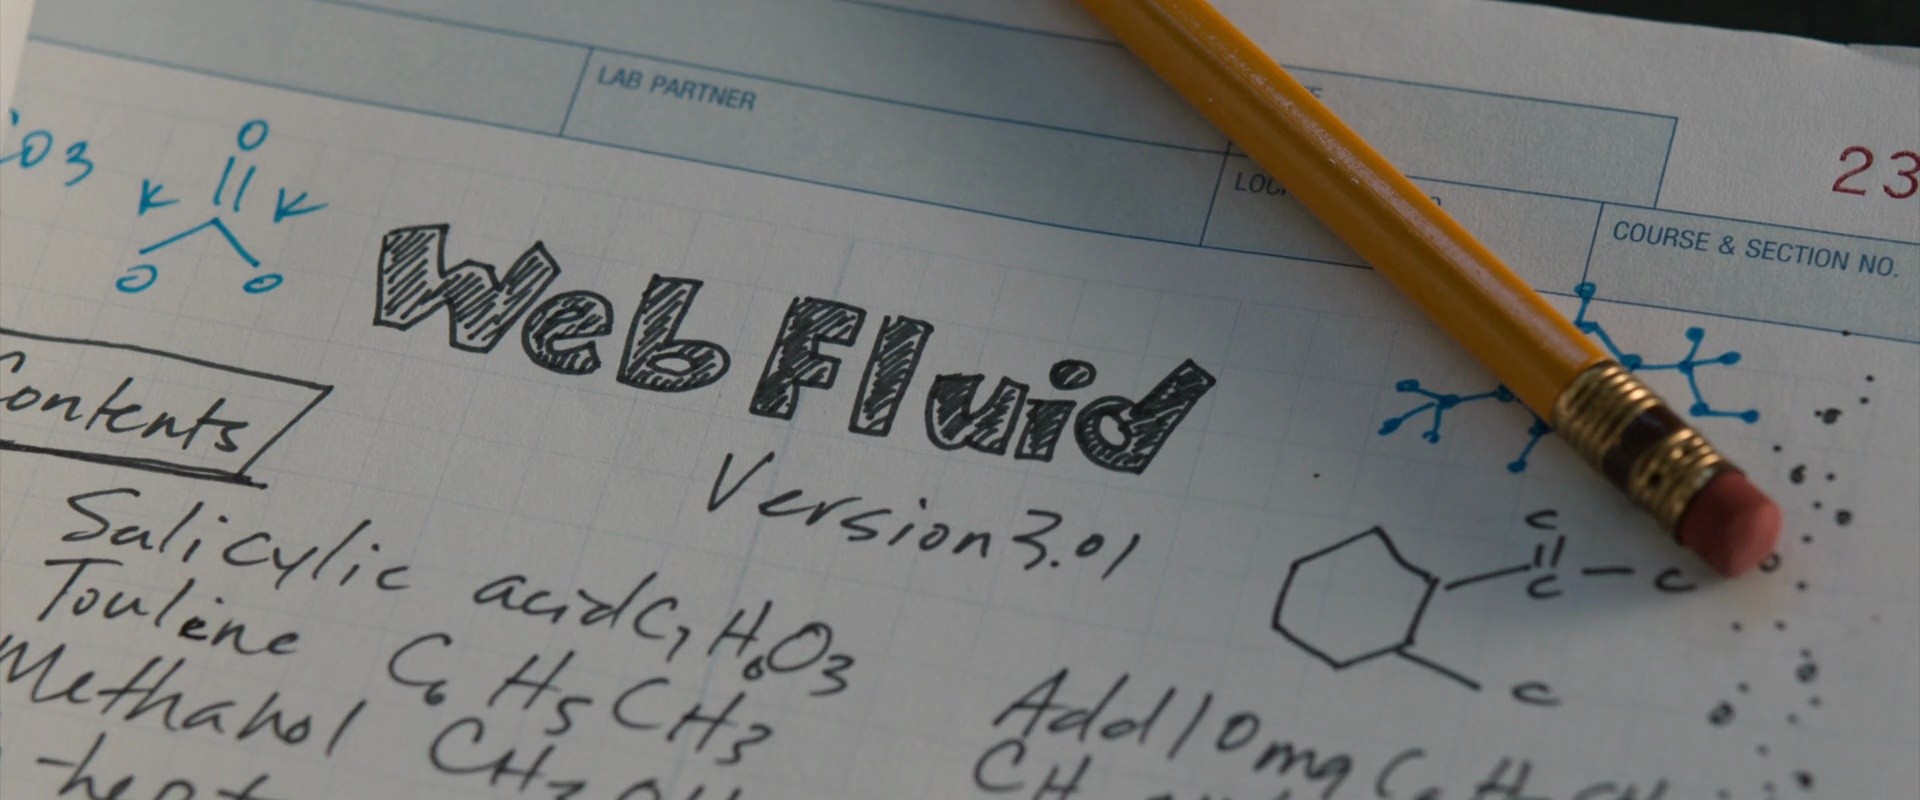 LAB PARTNER
COURSE & SECTION NO.
23
O
K K
O O
Web Fluid
Version 3.01
Contents
Salicylic acid C7H6O3
Toulene C6H5CH3
Methanol
C
C - C
C
Add 10mg
CH